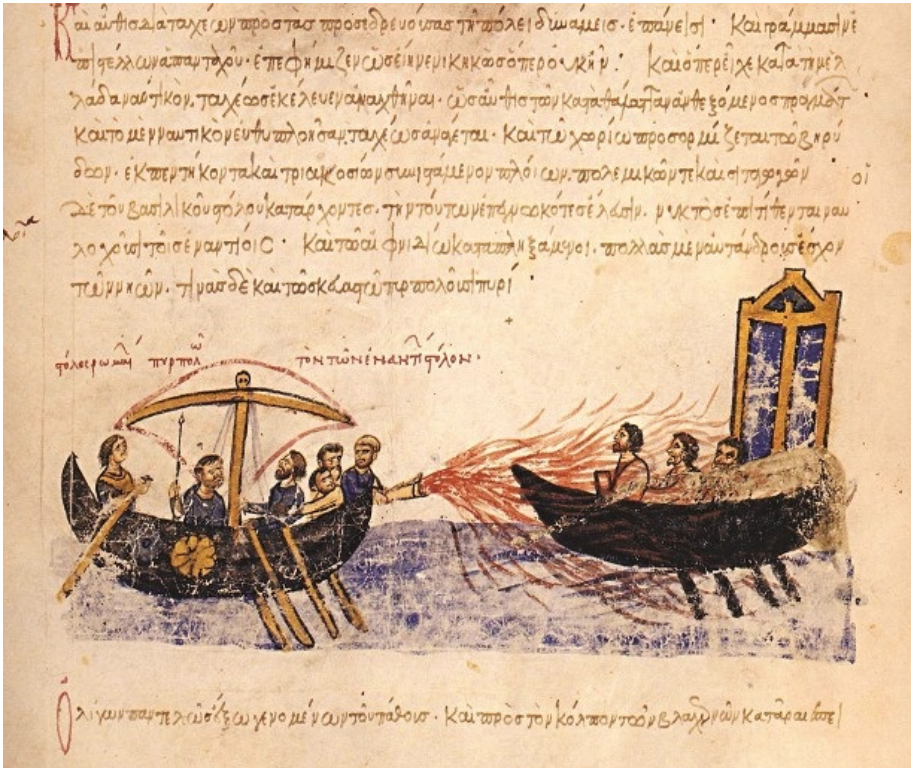 Καὶ αὖθις διὰ ταχέων πρὸς τὰς προσεδρευούσας τῆ πόλει δυνάμεις· ἐπάνεισι· Καὶ γράμμασιν ἐ
πιστέλλων ἁπανταχοῦ· ἐπεφήμιζεν ὡς εἴη νενικηκὼς ὅπερ οὐκ ἦν· Καὶ ὅπερ εἶχε κατὰ τὴν ἑλ
λάδα ναυτικόν· ταχέως ἐκέλευεν ἀναχθῆναι· ὡς αὖθις τῶν κατὰ θάλατταν ἀνθεξόμενος πραγμάτ
Καὶ τὸ μὲν ναυτικὸν εὐθυπλοῆσαν· ταχέως ἀνάγεται· Καὶ τῶ χωρίω προσορμίζεται τῶ βηρύ
δων· ἐκ πεντήκοντα καὶ τριακοσίων συνιστάμενον πλοίων· πολεμικῶν τε καὶ σιταγωγῶν οἱ
δὲ τοῦ βασιλικοῦ στόλου κατάρχοντες· τὴν τούτων ἐπεγνωκότες ἔλευσιν· νυκτὸς ἐπιτίθενται ναυ
λοχοῦσι τοῖς ἐναντίοις· Καὶ τῶ αἰφνιδίω καταπληξάμενοι· πολλὰς μὲν αὐτάνδρους ἔσχον
τῶν νηῶν· τινὰς δὲ καὶ τῶ σκευαστῶ πυρπολοῦσι πυρί·
στόλος ρωμαίων πυρπολῶν τὸν τῶν ἐναντίων στόλον·
ὀλίγων παντελῶς ἔξω γενομένων τοῦ πάθους· Καὶ πρὸς τὸν κόλπον τῶν βλαχερνῶν καταραι